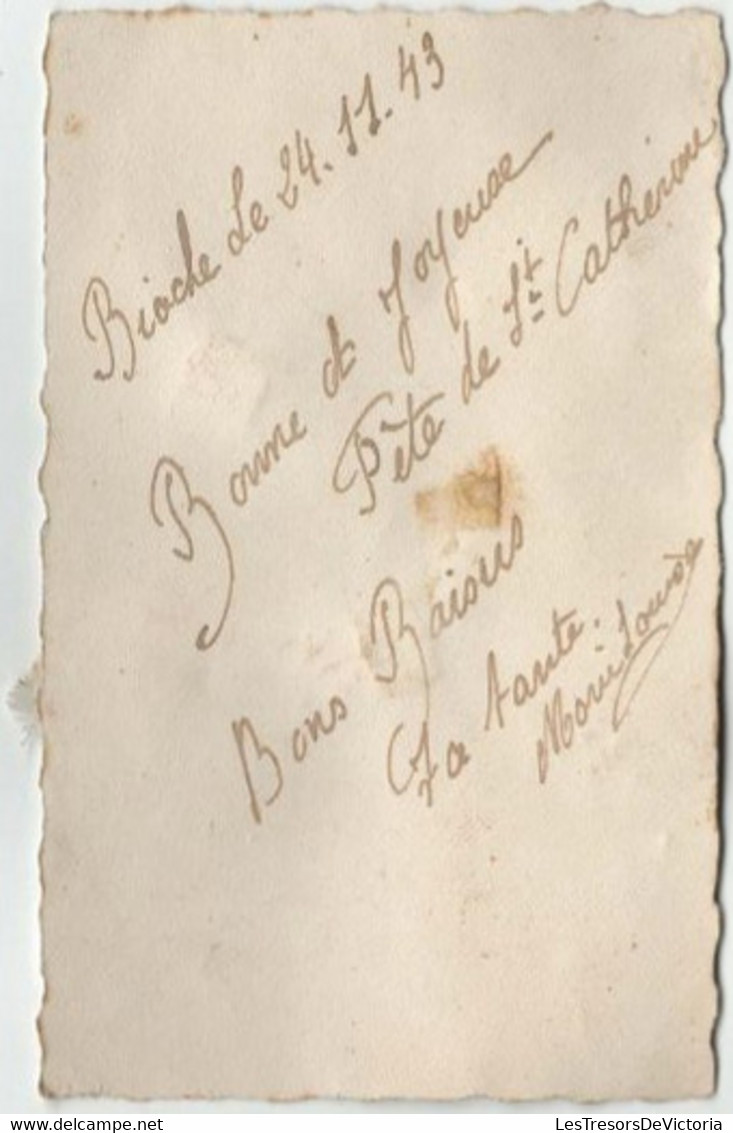 Biache Le 24.11.43
Bonne et Joyeuse
Fête de St Catherine
Bons Baisers
Ta tante.
Marie Louise
LesTresorsDeVictoria
delcampe.net